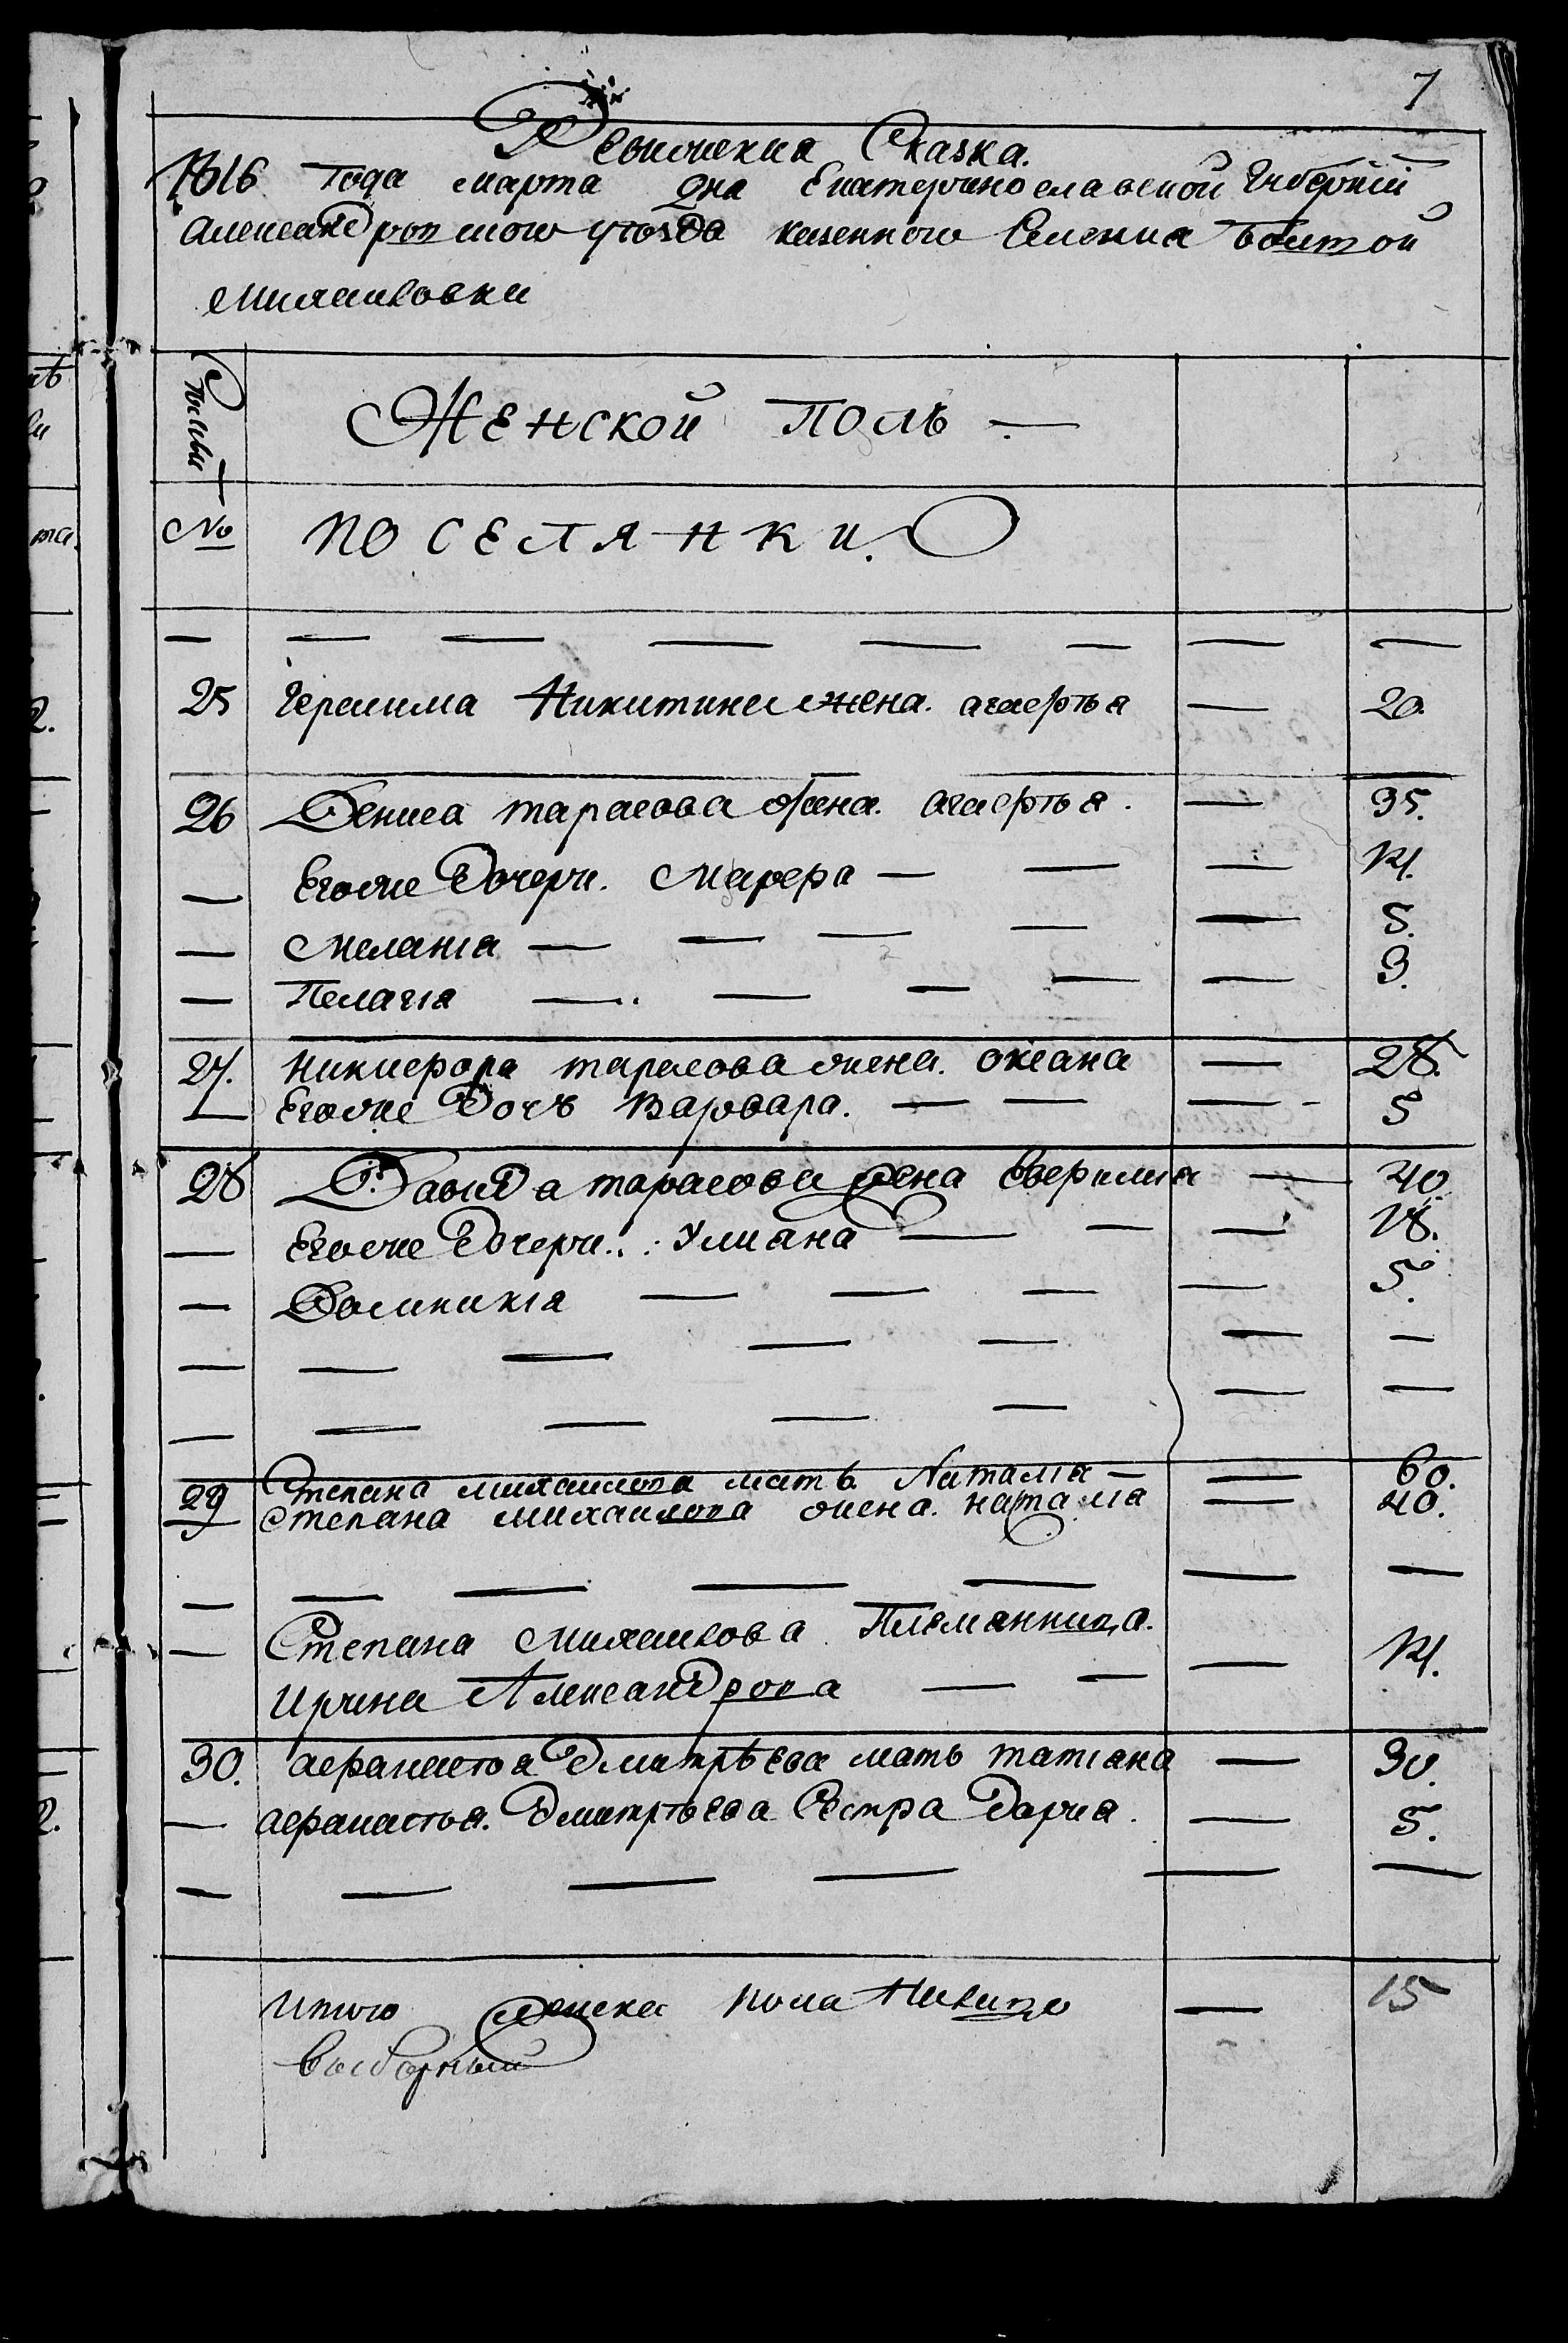 7
Ревижская Сказка.
1816 года марта дня Екатеринославской Губерній
александровского уѣзда казенного Селения
михаиловки
Женской полъ —
№ поселянки.
— — — — — — — —
25 Герасима Никитина жена. агафѣя — 20.
26 Дениса тарасова жена. агафѣя. — 35.
— Егоже дочери. Марфа — — — 14.
— Меланія — — — — — 5.
— Пелагія — — — — — 3.
27. никифора тарасова жена. оксана — 28.
— Егоже дочь варвара. — — — 5
28 Давида тарасова жена Ефимія — 40.
— Егоже дочери. Улиана — — — 18.
— Домникія — — — — 5.
— — — — — — —
— — — — — — —
29 Степана михаилова мать. Наталія — — 60.
Степана михаилова жена. наталія — 40.
— — — — — — —
— Степана михаилова племянница.
Ирина Александрова — — — 14.
30. афанасѣя Дмитрѣева мать татіана — 30.
— афанасѣя. Дмитрѣева Сестра Дариа. — 5.
— — — — — —
итого женска пола налицо — 15
выборный